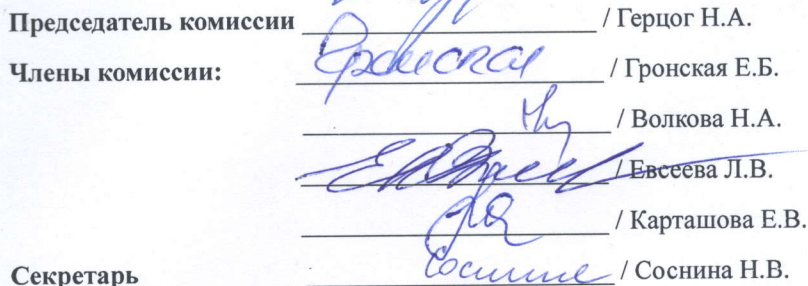 Председатель комиссии / Герцог Н.А.
Члены комиссии: / Гронская Е.Б.
/ Волкова Н.А.
/ Евсеева Л.В.
/ Карташова Е.В.
Секретарь / Соснина Н.В.